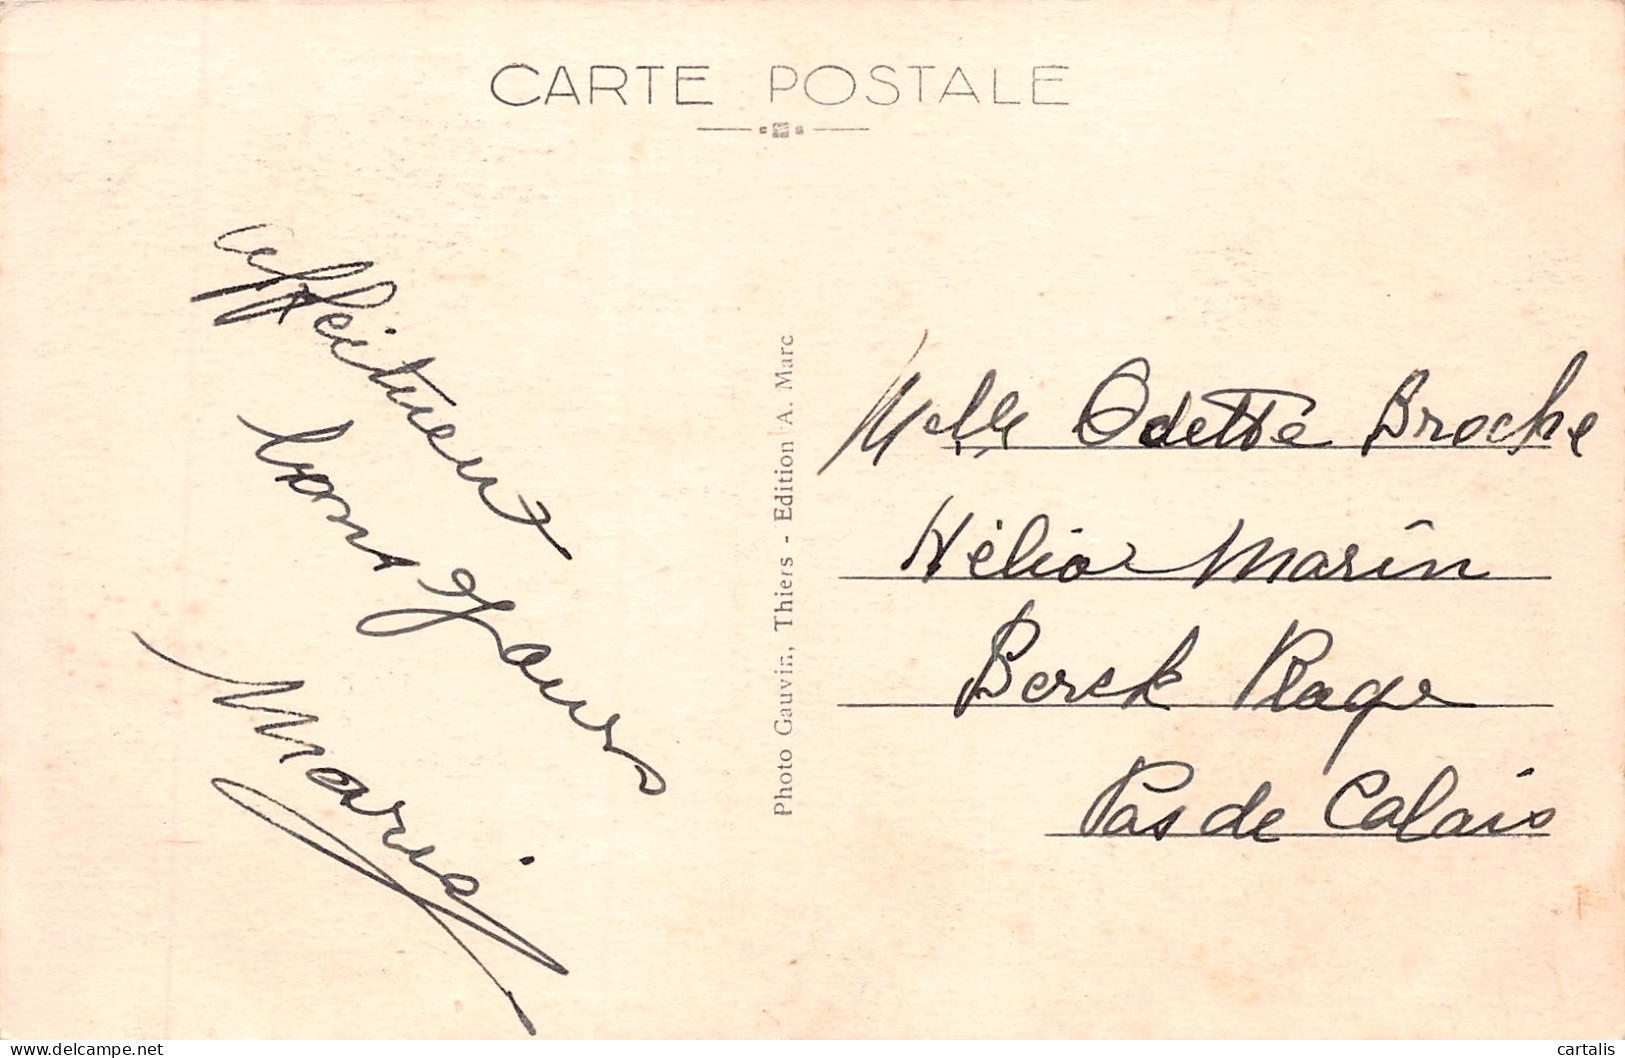 CARTE POSTALE
affectueux
bons
Marcis
Photo Gauvin, Thiers - Edition A. Marc
Melle Odette Broche
Hélio Marin
Berck Plage
Pas de Calais
delcampe.net
cartalis